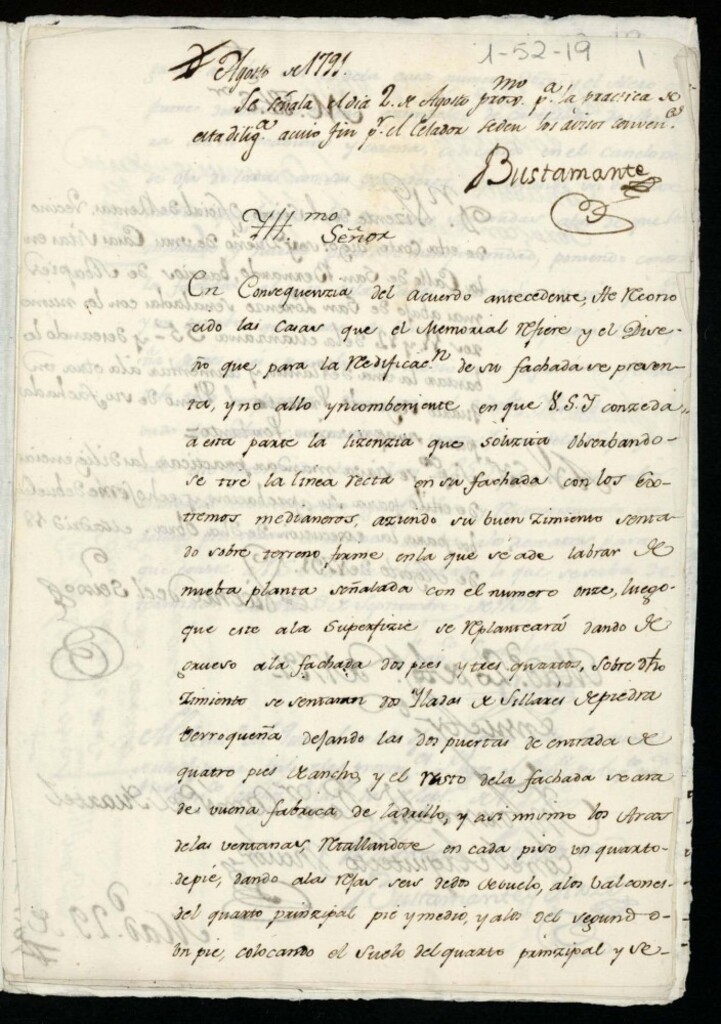 1-52-19 1
Agosto de 1791
Se señala el dia 2. de Agosto proxmo pa. la practica de
esta diliga acuio fin pr. el Celador seden los avisos convens.
Bustamante
Yllmo
Señor
En Consequenzia del acuerdo antecedente, He recono
cido las Casas que el Memorial refiere y el Dise-
ño que para la redificacn. de su fachada se presen-
ta, y no allo yncombeniente en que V.S.Y conzeda
a esta parte la lizenzia que solizita Obserbando-
se tire la linea recta en su fachada con los Ex-
tremos medianeros, aziendo su buen Zimiento senta-
do sobre terreno firme en la que se ade labrar de
nueba planta señalada con el numero onze, luego-
que este ala Superfizie se replanteará dando de
grueso ala fachada dos pies y tres quartos, sobre dho
Zimiento se sentaran dos Yladas de Sillares de piedra
berroqueña dejando las dos puertas de entrada de
quatro pies de ancho, y el resto dela fachada se ara
de buena fabrica de ladrillo, y asi mismo los Arcos
delas ventanas, retallandose en cada piso un quarto-
de pie, dando alas rejas seis dedos de buelo, alos balcones
del quarto prinzipal pie y medio, y alos del segundo-
un pie, colocando el suelo del quarto prinzipal y se-